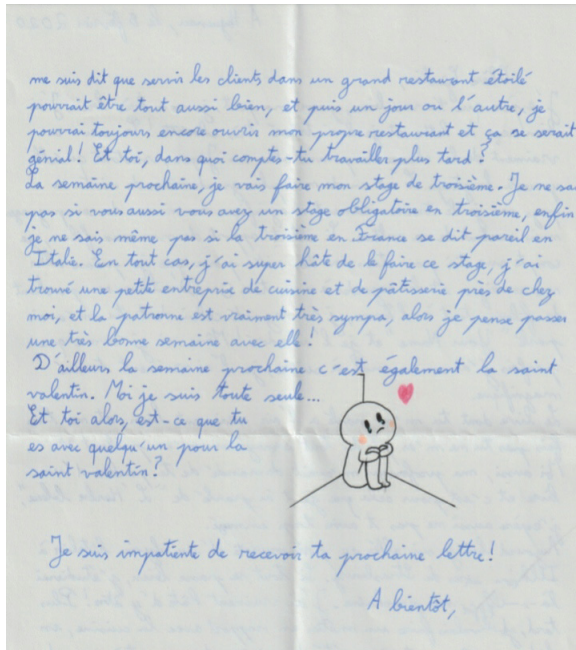 me suis dit que servir les clients dans un grand restaurant étoilé
pourrait être tout aussi bien, et puis un jour ou l'autre, je
pourrai toujours encore ouvrir mon propre restaurant et ça se serait
génial! Et toi, dans quoi comptes-tu travailler plus tard?
La semaine prochaine, je vais faire mon stage de troisième. Je ne sai
pas si vous aussi vous avez un stage obligatoire en troisième, enfin
je ne sais même pas si la troisième en France se dit pareil en
Italie. En tout cas, j'ai super hâte de le faire ce stage, j'ai
trouvé une petite entreprise de cuisine et de pâtisserie près de chez
moi, et la patronne est vraiment très sympa, alors je pense passer
une très bonne semaine avec elle!
D'ailleurs la semaine prochaine c'est également la saint
valentin. Moi je suis toute seule...
Et toi alors, est-ce que tu
es avec quelqu'un pour la
saint valentin?
Je suis impatiente de recevoir ta prochaine lettre!
A bientôt,